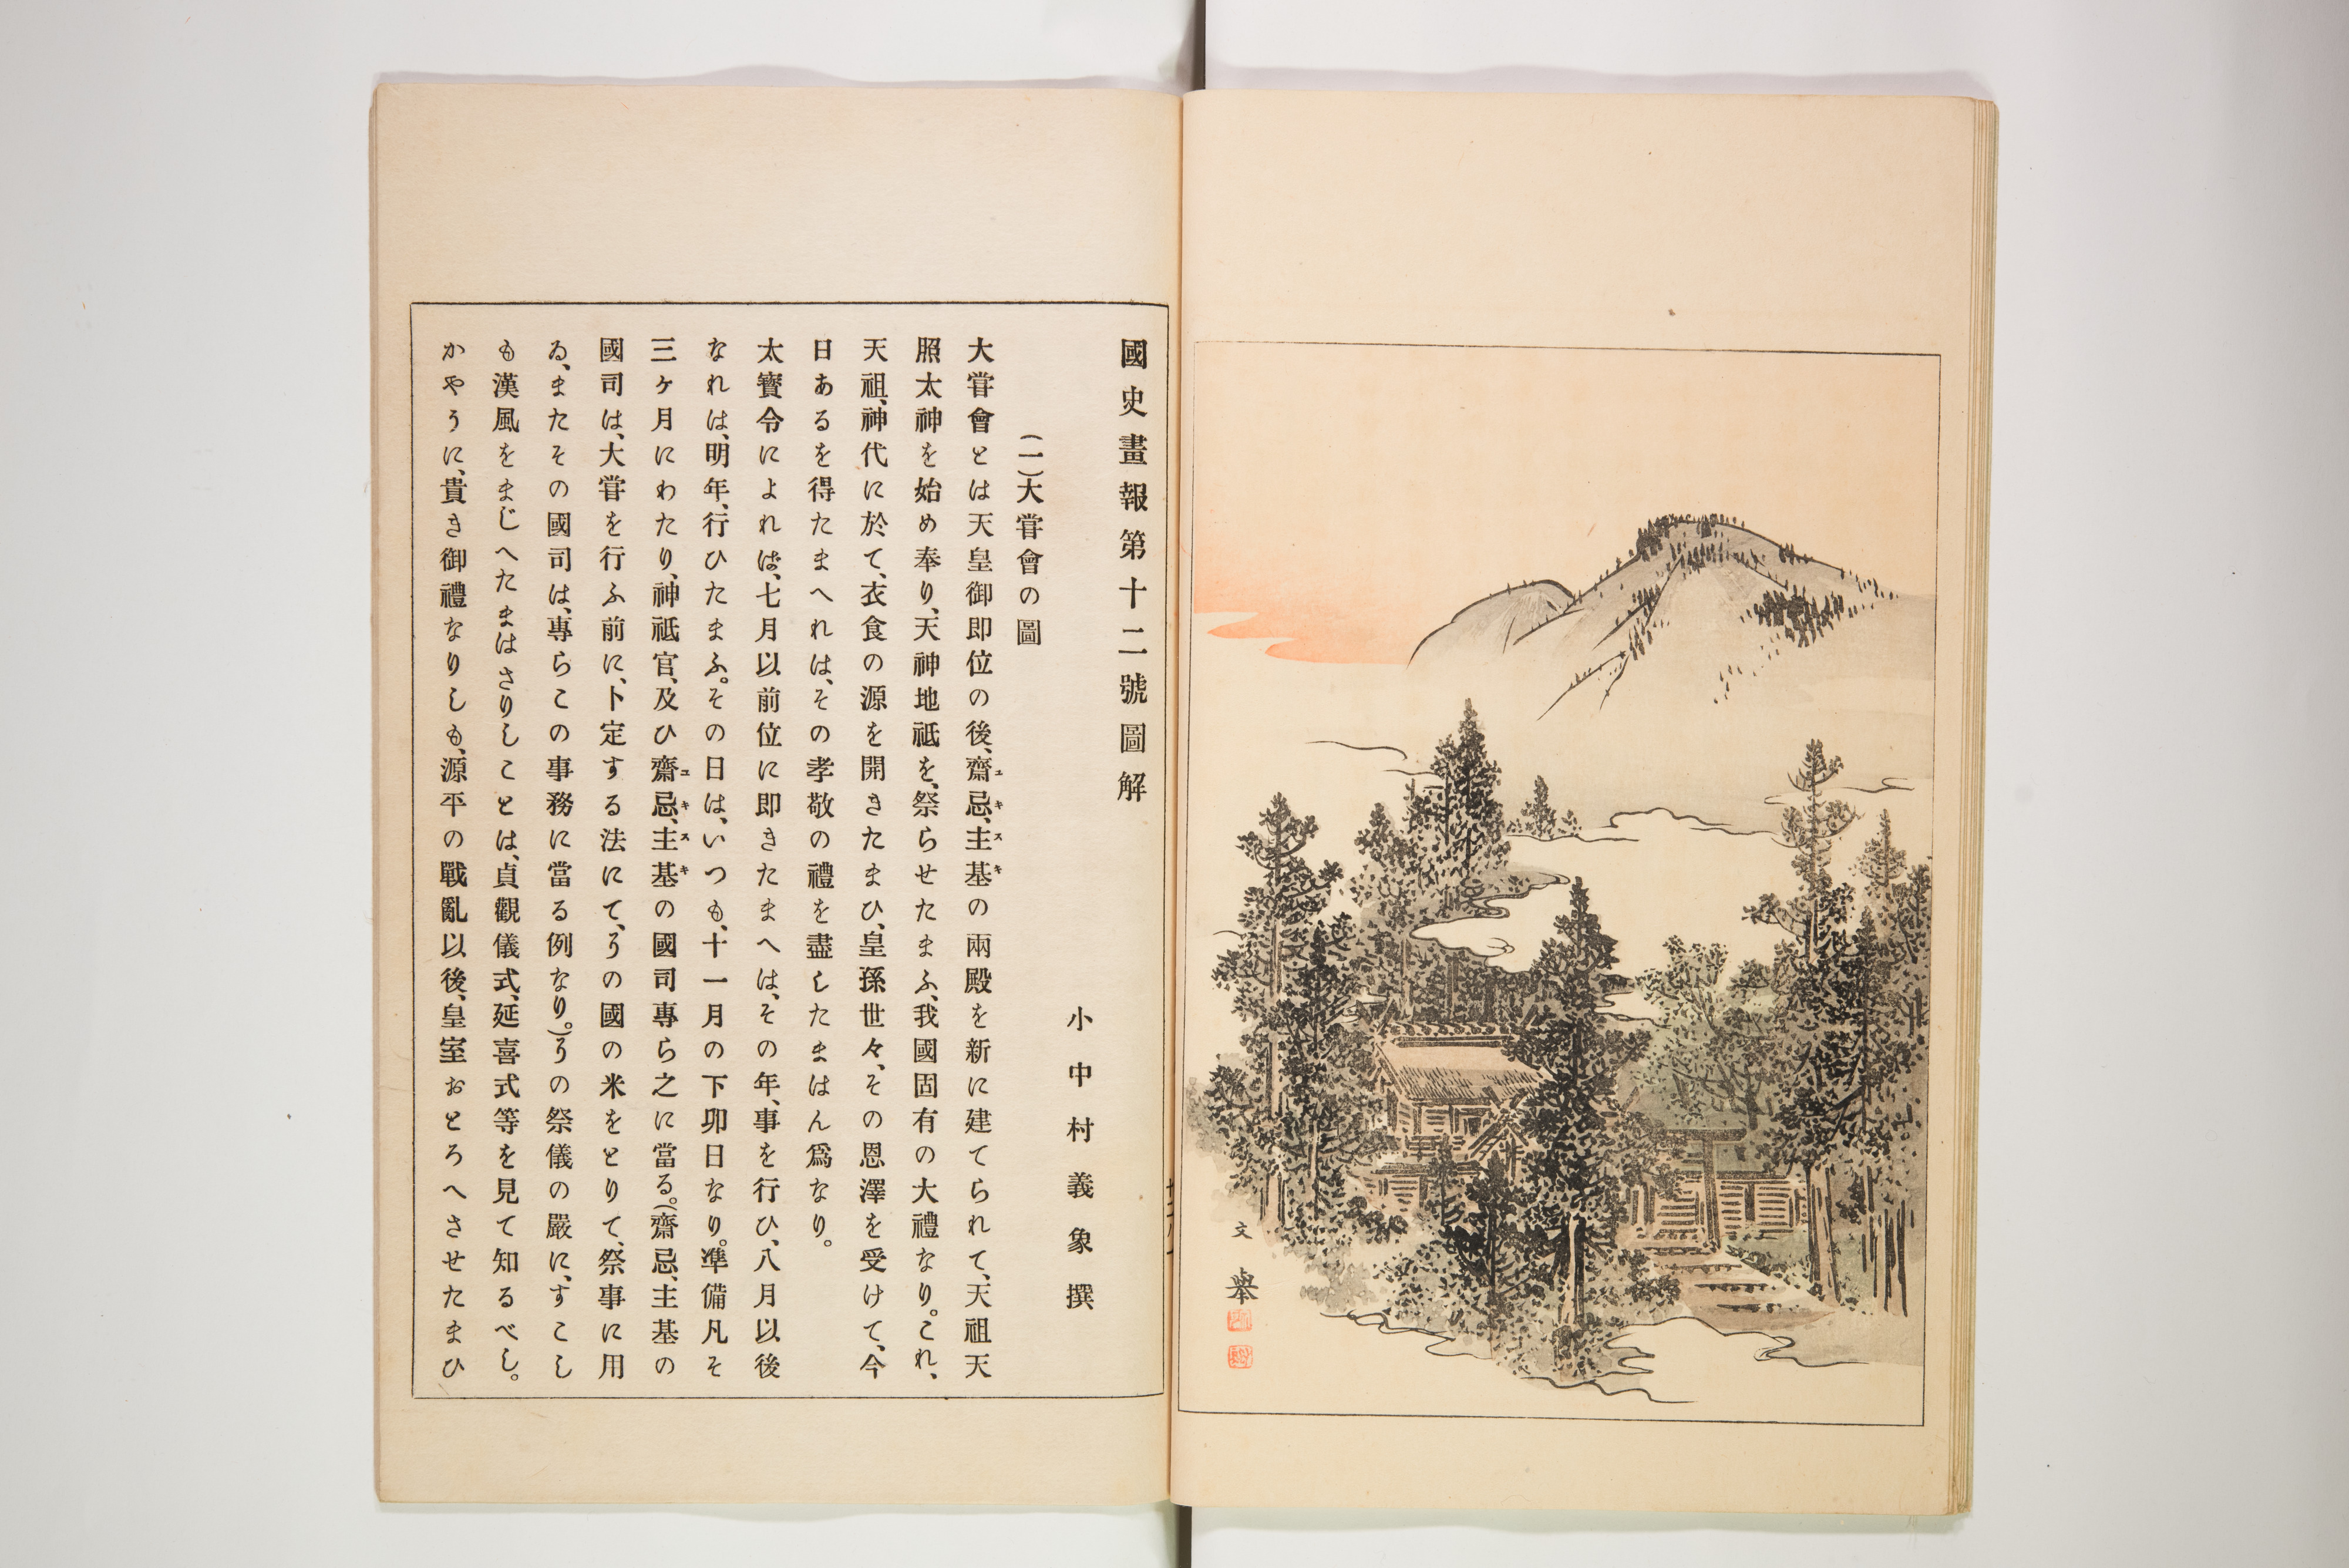 文
擧
國史畫報第十二號圖解
小中村義象撰
(一)大甞會の圖
大甞會とは天皇御即位の後、齋忌、主基の兩殿を新に建てられて、天祖天
照太神を始め奉り、天神地祗を、祭らせたまふ、我國固有の大禮なり。これ、
天祖、神代に於て、衣食の源を開きたまひ、皇孫世々、その恩澤を受けて、今
日あるを得たまへれは、その孝敬の禮を盡したまはん爲なり。
太寳令によれば、七月以前位に即きたまへは、その年、事を行ひ、八月以後
なれは、明年、行ひたまふ。その日は、いつも、十一月の下卯日なり。準備凡そ
三ケ月にわたり、神祗官、及ひ齋忌、主基の國司專ら之に當る。(齋忌、主基の
國司は、大甞を行ふ前に、卜定する法にて、うの國の米をとりて、祭事に用
ゐ、またその國司は、專らこの事務に當る例なり。)うの祭儀の嚴に、すこし
も漢風をまじへたまはさりしことは、貞觀儀式、延喜式等を見て知るべし。
かやうに、貴き御禮なりしも、源平の戰亂以後、皇室おとろへさせたまひ